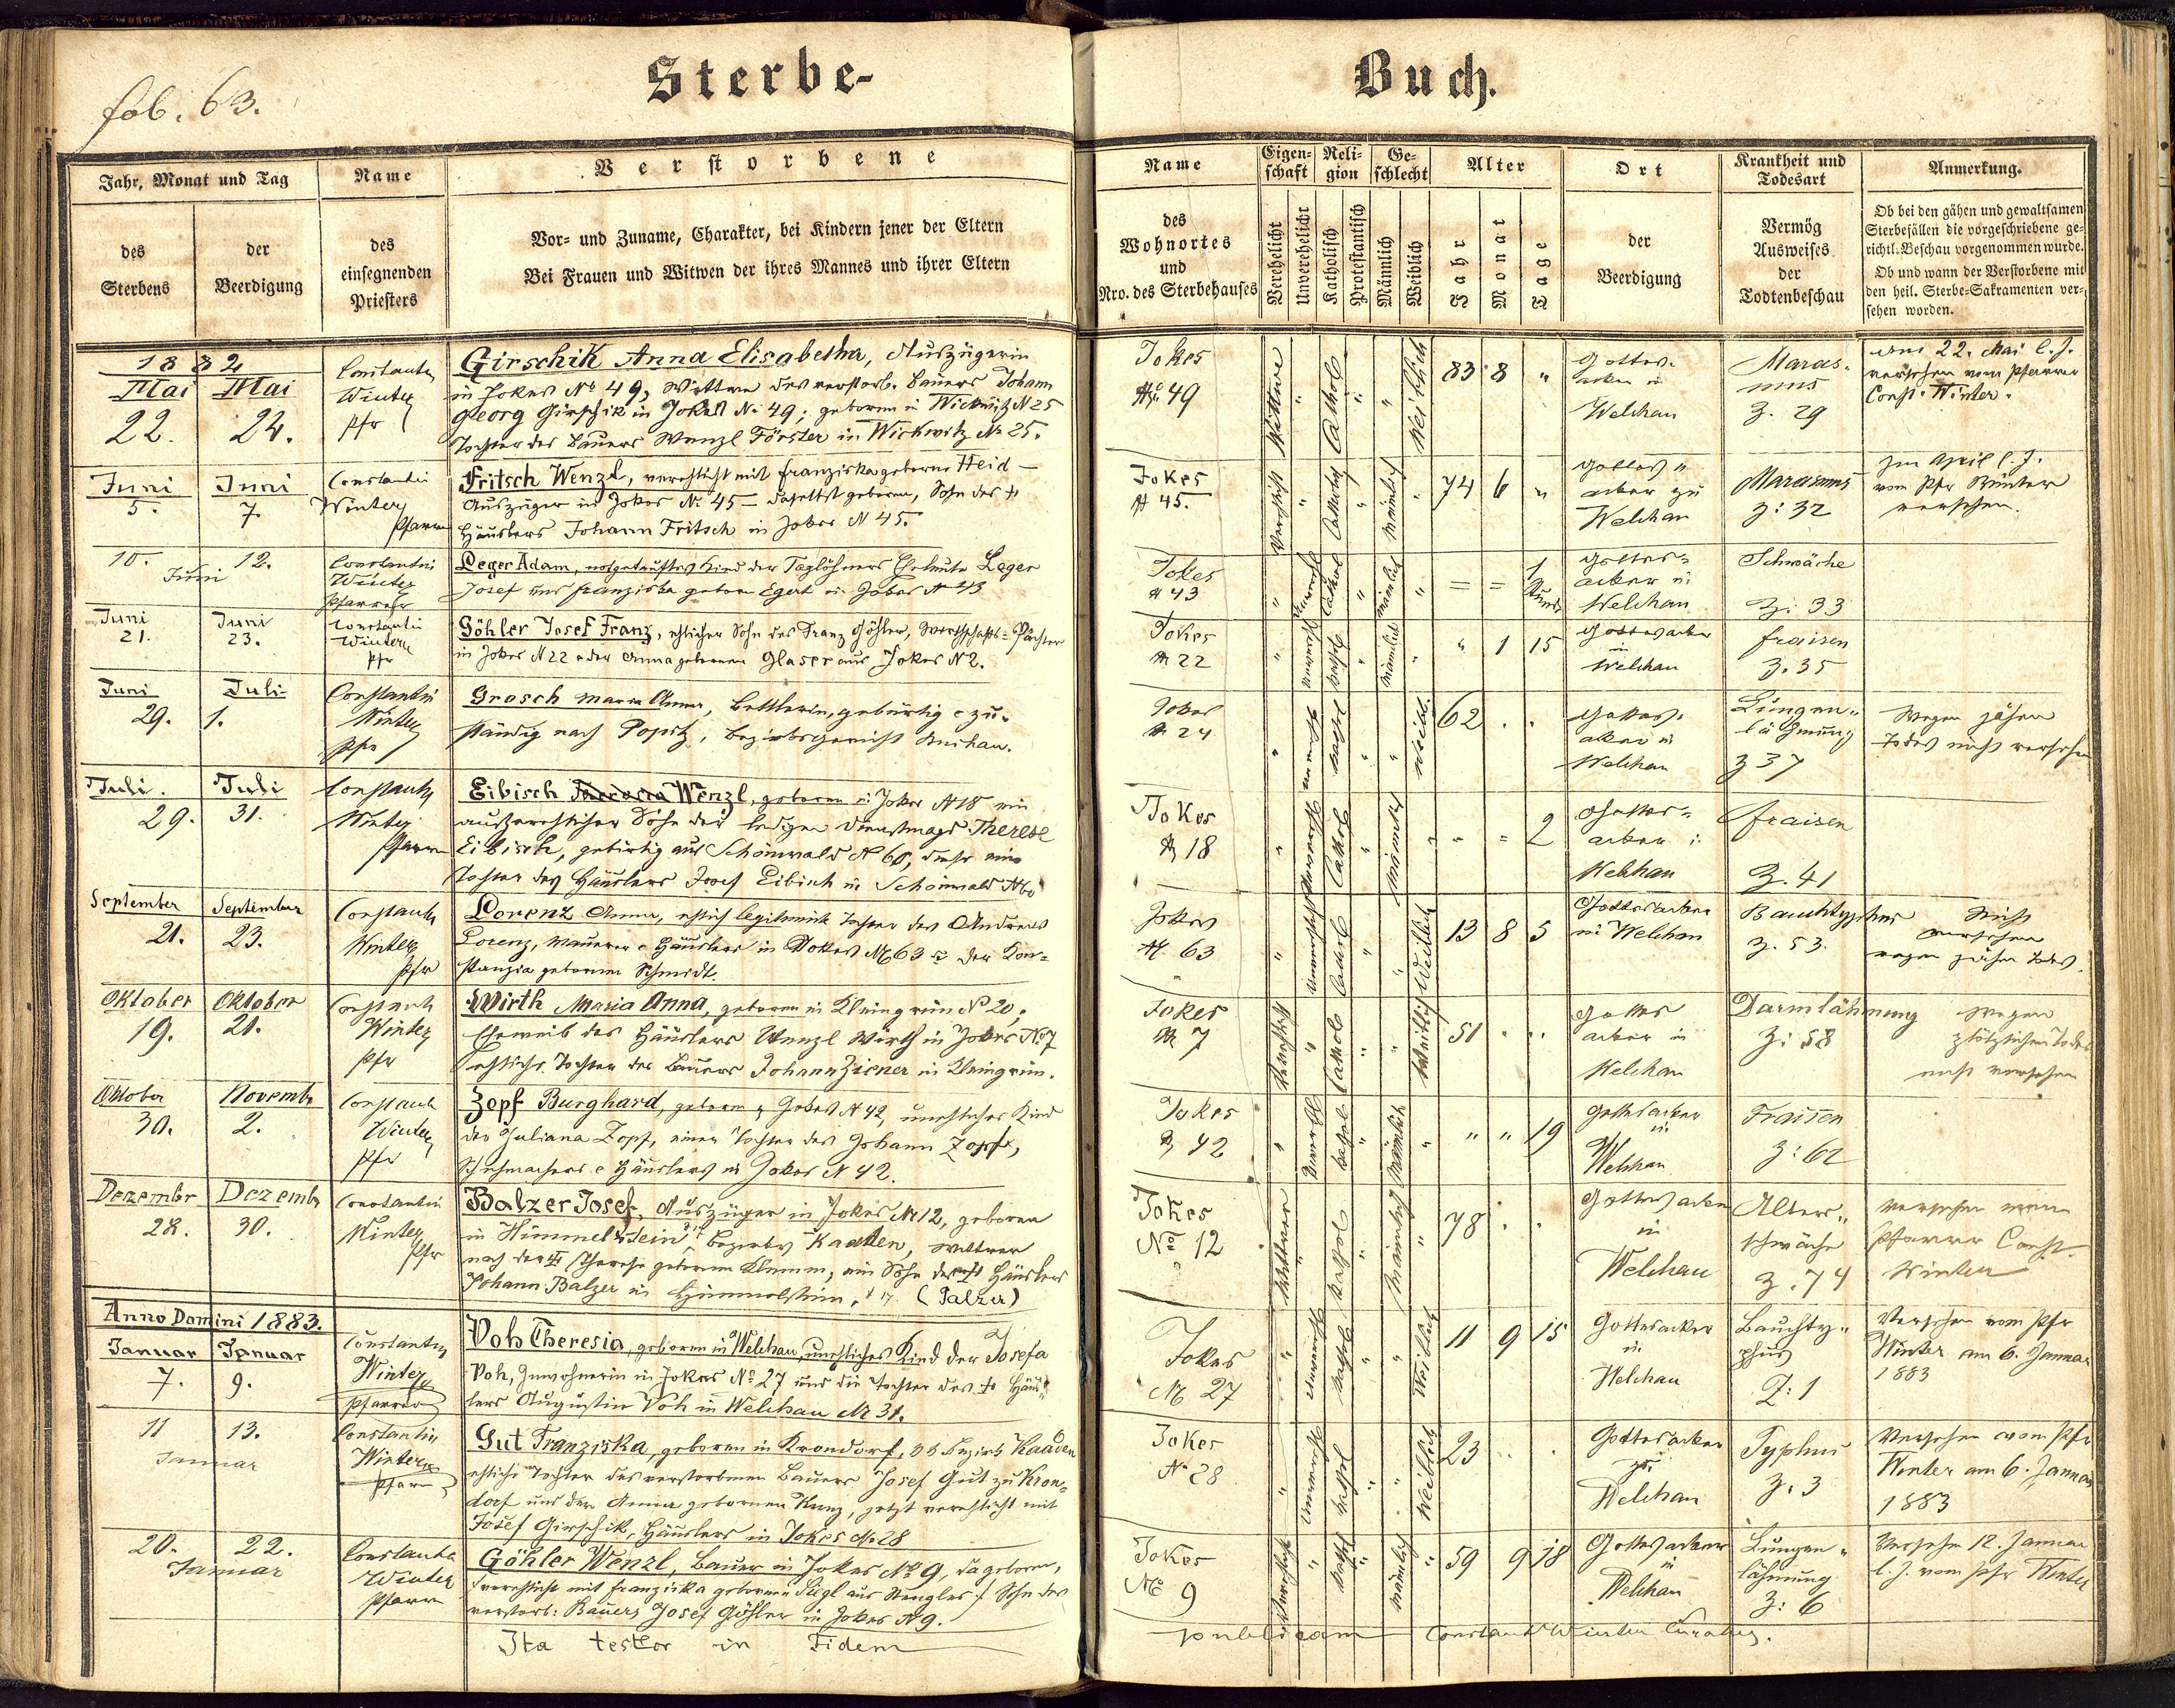 fol. 63.
Sterbe-
Buch.
Jahr, Monat und Tag
Name
Verstorbene
des
Sterbens
der
Beerdigung
des
einsegnenden
Priesters
Vor- und Zuname, Charakter, bei Kindern jener der Eltern
Bei Frauen und Witwen der ihres Mannes und ihrer Eltern
Name
des
Wohnortes
und
Nro. des Sterbehauses
Eigen-
schaft
Verehelicht
Unverehelicht
Reli-
gion
Katholisch
Protestantisch
Ge-
schlecht
Männlich
Weiblich
Alter
Jahr
Monat
Tage
Ort
der
Beerdigung
Krankheit und
Todesart
Vermög
Ausweises
der
Todtenbeschau
Anmerkung.
Ob bei den gähen und gewaltsamen
Sterbefällen die vorgeschriebene ge-
richtl. Beschau vorgenommen wurde.
Ob und wann der Verstorbene mit
den heil. Sterbe-Sakramenten ver-
sehen worden.
1882
Mai Mai
22. 24.
Constantin
Winter
Pfr
Girschik Anna Elisabetha, Auszügerin
in Jokes No 49, Wittwe des verstorb. Bauers Johann
Georg Girschik in Jokes No 49; geboren in Wickwitz N 25
Tochter des Bauers Wenzl Förster in Wickwitz No 25.
Jokes
No 49
Wittwe " Cathol " " Weiblich
83 8 "
Gottes-
acker in
Welchau
Maras-
mus
Z. 29
am 22. Mai l. J.
versehen vom Pfarrer
Const. Winter.
Juni Juni
5. 7.
Constantin
Winter
Pfarrer
Fritsch Wenzl, verehlicht mit Franziska geborne Heid –
Auszüger in Jokes No 45 – daselbst geboren, Sohn des †
Häuslers Johann Fritsch in Jokes N 45.
Jokes
N 45.
74 6 "
Gottes-
acker zu
Welchau
Marasmus
Z: 32
Im April l. J.
vom Pfr Winter
versehen.
10. 12.
Juni
Constantin
Winter
Pfarrer
Leger Adam, nothgetauftes Kind der Taglöhners Eheleute Leger
Josef und Franziska geborn Egert in Jokes N 43
Jokes
N 43
= = 1
Stunde
Gottes-
acker in
Welchau
Schwäche
Z: 33
Juni Juni
21. 23.
Constantin
Winter
Pfr
Göhler Josef Franz, ehlicher Sohn des Franz Göhler, Wirthschafts-Pächter
in Jokes N 22 u der Anna geborenen Glaser aus Jokes N 2.
Jokes
N 22
" 1 15
Gottesacker
in
Welchau
Fraisen
Z. 35
Juni Juli
29. 1.
Constantin
Winter
Pfr
Grosch Maria Anna, Bettlerin, gebürtig u zu-
ständig nach Popitz, Bezirksgericht Buchau.
Jokes
N 24
62 . .
Gottes-
acker in
Welchau
Lungen-
lähmung
Z 37
Wegen jähen
Todes nicht versehen
Juli. Juli
29. 31.
Constantin
Winter
Pfarrer
Eibisch Wenzl, geboren in Jokes N 18 ein
außerehlicher Sohn der ledigen Dienstmagd Therese
Eibisch, gebürtig aus Schönwald N 60, diese eine
Tochter des Häuslers Josef Eibisch in Schönwald N 60
Jokes
N 18
" = 2
Gottes-
acker in
Welchau
Fraisen
Z. 41
September September
21. 23.
Constantin
Winter
Pfr
Lorenz Anna, ehlich legitimirte Tochter des Andreas
Lorenz, Maurer u Häusler in Jokes No 63 u der Kon-
stanzia geboren Schmidt.
Jokes
N. 63
13 8 5
Gottesacker
in Welchau
Bauchtyphus
Z. 53.
Nicht
versehen
wegen jähen Todes.
Oktober Oktober
19. 21.
Constantin
Winter
Pfr
Wirth Maria Anna, geboren in Kleingrün No 20,
Eheweib des Häuslers Wenzl Wirth in Jokes No 7
ehliche Tochter des Bauers Johann Zirner in Kleingrün.
Jokes
N 7
51 . .
Gottes
acker in
Welchau
Darmlähmung
Z: 58
wegen
plötzlichen Todes
nicht versehen
Oktober November
30. 2.
Constantin
Winter
Pfr
Zopf Burghard, geboren z Jokes N 42, unehliches Kind
der Juliana Zopf, einer Tochter des Johann Zopf,
Schuhmachers u Häuslers in Jokes N 42.
Jokes
N 42
" " 19
Gottesacker
in
Welchau
Fraisen
Z: 62
Dezember Dezember
28. 30.
Constantin
Winter
Pfr
Balzer Josef, Auszüger in Jokes No 12, geboren
in Himmelstein, Bezirks Kaaden, Wittwer
nach der Therese geborenen Klemm, ein Sohn des † Häuslers
Johann Balzer in Himmelstein, N 17. (Palzer)
Jokes
No 12
78 . .
Gottesacker
in
Welchau
Alters-
schwäche
Z. 74
Versehen vom
Pfarrer Const.
Winter
Anno Domini 1883.
Januar Januar
7. 9.
Constantin
Winter
Pfarrer
Voh Theresia, geboren in Welchau, unehliches Kind der Josefa
Voh, Inwohnerin in Jokes No 27 und die Tochter des † Häus-
lers Augustin Voh in Welchau No 31.
Jokes
No 27
11 9 15
Gottesacker
in
Welchau
Bauchty-
phus
Z: 1
Versehen vom Pfr
Winter am 6. Januar
1883
11 13.
Januar
Constantin
Winter
Pfarrer
Gut Franziska, geboren in Krondorf, 33 Bezirk Kaaden
ehliche Tochter des verstorbenen Bauers Josef Gut zu Kron-
dorf und der Anna gebornen Kunz, jetzt verehlicht mit
Josef Girschik, Häuslers in Jokes No 28
Jokes
No 28
23 . .
Gottesacker
zu
Welchau
Typhus
Z. 3
Versehen vom Pfr
Winter am 6. Januar
1883
20. 22.
Januar
Constantin
Winter
Pfarrer
Göhler Wenzl, Bauer in Jokes No 9, da geboren,
(verehlicht mit Franziska gebornen Siegl aus Stengles) Sohn des
verstorb: Bauers Josef Göhler in Jokes N 9.
Jokes
No 9
59 9 18
Gottesacker
in
Welchau
Lungen-
lähmung
Z: 6
Versehen 12. Januar
l. J. vom Pfr Winter
Ita testor in Fidem
publicam Constant Winter Curatus.